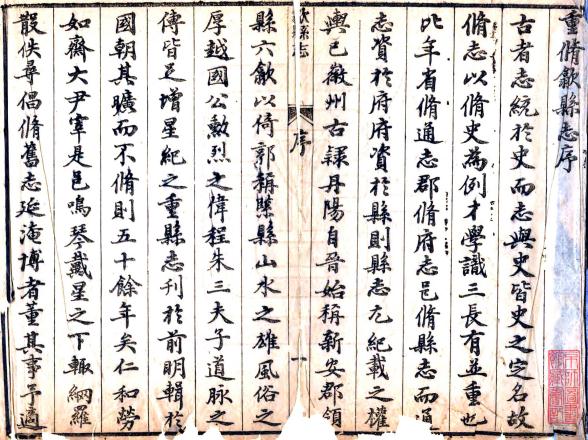 重脩歙縣志序
古者志統於史而志與史皆史之定名故
脩志以脩史為例才學識三長有並重也
比年省脩通志郡脩府志邑脩縣志而通
志資於府府資於縣則縣志尤紀載之權
輿已徽州古隷丹陽自晉始稱新安郡領
歙縣志
序
一
縣六歙以倚郭稱緊縣山水之雄風俗之
厚越國公勳烈之偉程朱三夫子道脉之
傳皆足增星紀之重縣志刊於前明輯於
國朝其曠而不脩則五十餘年矣仁和勞
如齋大尹宰是邑鳴琴戴星之下輙網羅
散佚尋倡脩舊志延淹博者董其事予適